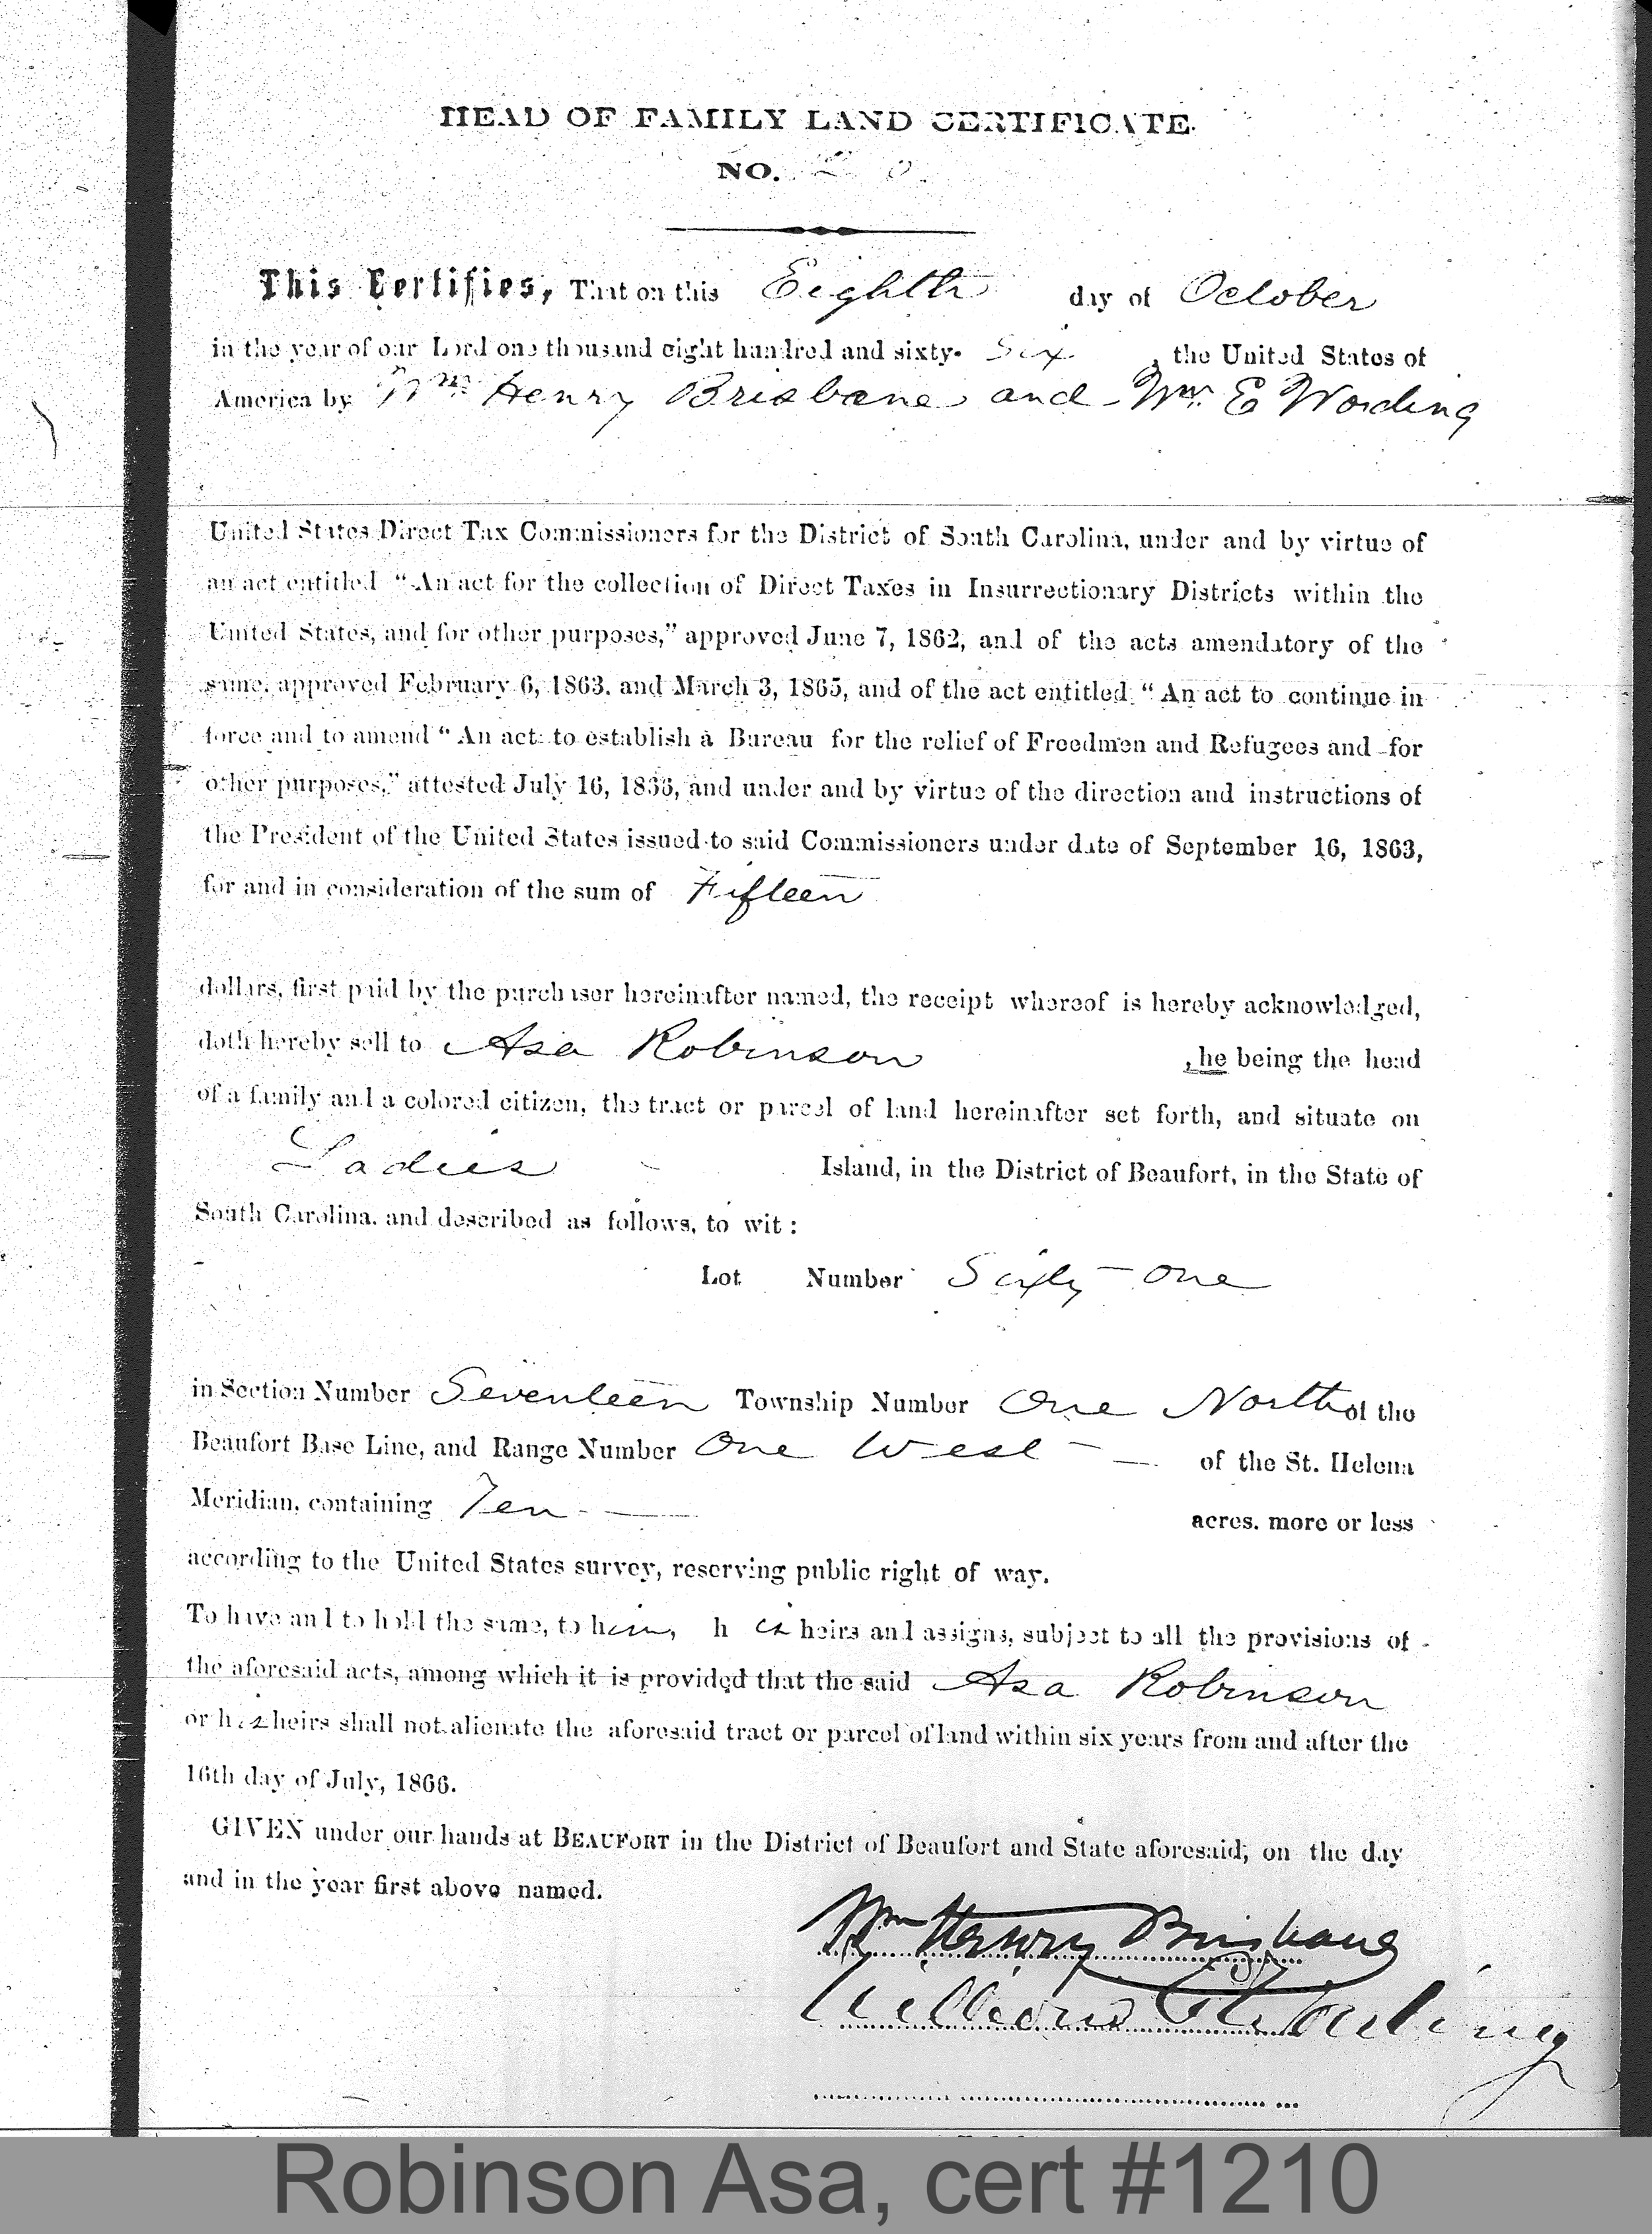 HEAD OF FAMILY LAND CERTIFICATE.
NO.
This Certifies, That on this Eighth day of October
in the year of our Lord one thousand eight hundred and sixty- Six , the United States of
America by Wm Henry Brisbane and Wm. E Wording
United States Direct Tax Commissioners for the District of South Carolina, under and by virtue of
an act entitled "An act for the collection of Direct Taxes in Insurrectionary Districts within the
United States, and for other purposes," approved June 7, 1862, and of the acts amendatory of the
same, approved February 6, 1863, and March 3, 1865, and of the act entitled "An act to continue in
force and to amend "An act to establish a Bureau for the relief of Freedmen and Refugees and for
other purposes," attested July 16, 1866, and under and by virtue of the direction and instructions of
the President of the United States issued to said Commissioners under date of September 16, 1863,
for and in consideration of the sum of Fifteen
dollars, first paid by the purchaser hereinafter named, the receipt whereof is hereby acknowledged,
doth hereby sell to Asa Robinson , he being the head
of a family and a colored citizen, the tract or parcel of land hereinafter set forth, and situate on
Ladies Island, in the District of Beaufort, in the State of
South Carolina, and described as follows, to wit:
Lot Number Sixty-One
in Section Number Seventeen Township Number One North of the
Beaufort Base Line, and Range Number One West — of the St. Helena
Meridian, containing Ten — acres, more or less
according to the United States survey, reserving public right of way.
To have and to hold the same, to him, his heirs and assigns, subject to all the provisions of
the aforesaid acts, among which it is provided that the said Asa Robinson
or his heirs shall not alienate the aforesaid tract or parcel of land within six years from and after the
16th day of July, 1866.
GIVEN under our hands at BEAUFORT in the District of Beaufort and State aforesaid, on the day
and in the year first above named.
Wm Henry Brisbane
William E Wording
Robinson Asa, cert #1210